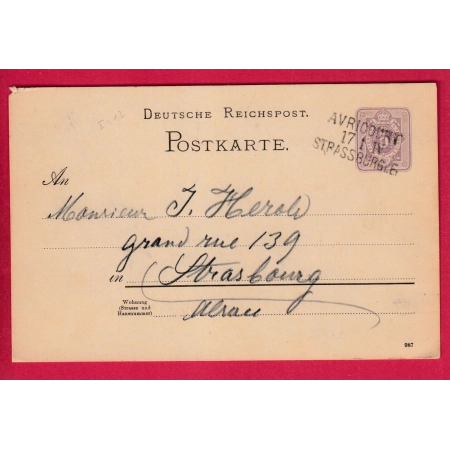 DEUTSCHE REICHSPOST.
POSTKARTE.
AVRICOURT
17 IV
STRASSBURG
An
Monsieur J. Herold
grand rue 139
in Strasbourg
Wohnung
(Strasse und
Hausnummer)
Alsace
987